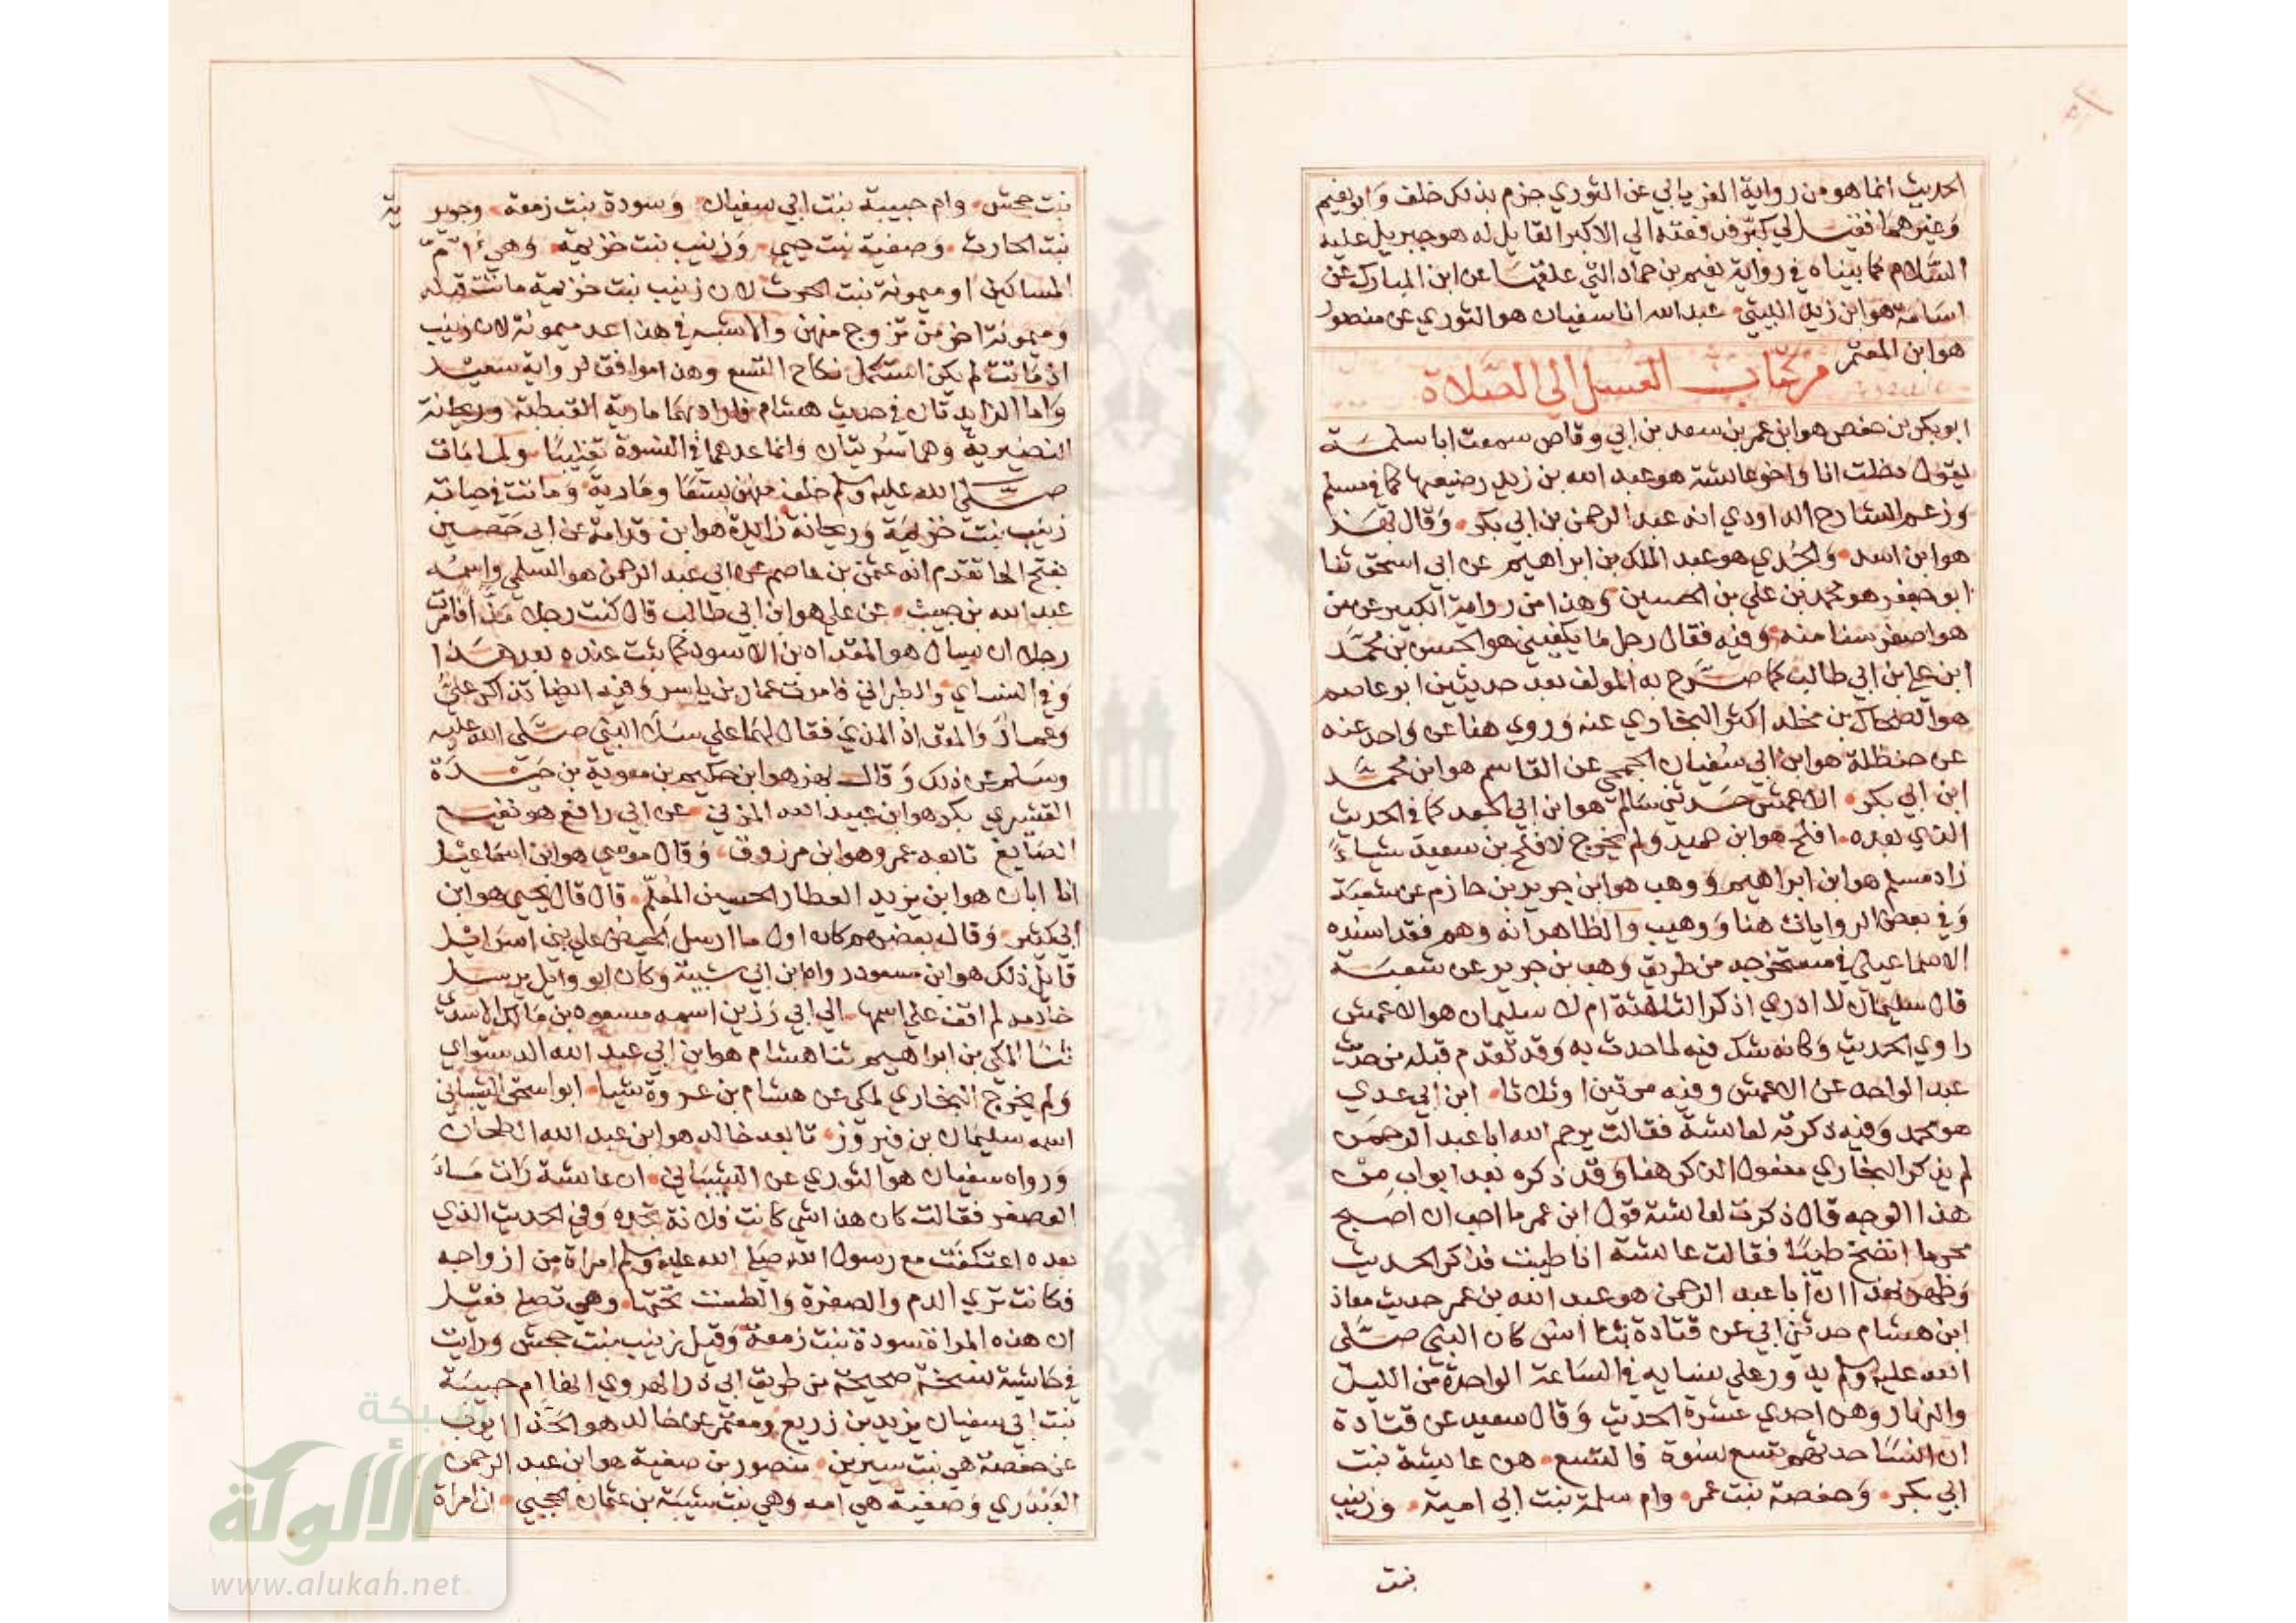 الحديث انما هو من رواية الفريابي عن الثوري جزم بذلك خلف وابو نعيم
وغيرهما فقيل لي كبر فدفعته الي الاكبر القايل له هو جبريل عليه
السلام كما بيناه في رواية نعيم بن حماد التي علقها عن ابن المبارك عن
اسامة هو ابن زيد الليثي عبد الله انا سفيان هو الثوري عن منصور
هو ابن المعتمر
من كتاب الغسل الي الصلاة
ابو بكر بن حفص هو ابن عمر بن سعد بن ابي وقاص سمعت ابا سلمة
يقول دخلت انا واخو عايشة هو عبد الله بن زيد رضيعها كما في مسلم
وزعم الشارح الداودي انه عبد الرحمن بن ابي بكر وقال بهز
هو ابن اسد والجدي هو عبد الملك بن ابراهيم عن ابي اسحق ثنا
ابو جعفر هو محمد بن علي بن الحسين وهذا من رواية الكبير عن من
هو اصغر سنا منه وفيه فقال رجل ما يكفيني هو الحسن بن محمد
ابن علي ابن ابي طالب كما صرح به المولف بعد حديثين ابو عاصم
هو الضحاك بن مخلد اكثر البخاري عنه وروي هنا عن واحد عنه
عن حنظلة هو ابن ابي سفيان الجمحي عن القاسم هو ابن محمد
ابن ابي بكر الاعمش حدثني سالم هو ابن ابي الجعد كما في الحديث
الذي بعده افلح هو ابن حميد ولم يخرج لافلح بن سعيد شياء
زاد مسلم هو ابن ابراهيم ووهب هو ابن جرير بن حازم عن شعبة
وفي بعض الروايات هنا ووهيب والظاهر انه وهم فقد اسنده
الاسماعيلي في مستخرجه من طريق وهب بن جرير عن شعبة
قال سليمان لا ادري اذكر الثالثة ام لا سليمان هو الاعمش
راوي الحديث وكانه شك فيه لما حدث به وقد تقدم قبله من حديث
عبد الواحد عن الاعمش وفيه مرتين او ثلاثا ابن ابي عدي
هو محمد وفيه ذكرته لعايشة فقالت يرحم الله ابا عبد الرحمن
لم يذكر البخاري مفعول الذكر هنا وقد ذكره بعد ابواب من
هذا الوجه قال ذكرت لعايشة قول ابن عمر ما احب ان اصبح
محرما انضخ طيبا فقالت عايشة انا طيبت فذكر الحديث
وظهر بهذا ان ابا عبد الرحمن هو عبد الله بن عمر حديث معاذ
ابن هشام حدثني ابي عن قتادة ثنا انس كان النبي صلى
الله عليه وسلم يدور علي نسايه في الساعة الواحدة من الليل
والنهار وهن احدي عشرة الحديث وقال سعيد عن قتادة
ان انسا حدثهم تسع نسوة فالتسع هن عايشة بنت
ابي بكر وحفصة بنت عمر وام سلمة بنت ابي امية وزينب
بنت
بنت جحش وام حبيبة بنت ابي سفيان وسودة بنت زمعة وجويرية
بنت الحارث وصفية بنت حيي وزينب بنت خزيمة وهي ام
المساكين او ميمونة بنت الحرث لان زينب بنت خزيمة ماتت قبله
وميمونة اخر من تزوج منهن والاشبه في هذا عد ميمونة لان زينب
اذ ماتت لم يكن استكمل نكاح التسع وهذا موافق لرواية سعيد
واما الزايدتان في حديث هشام فالمراد بهما مارية القبطية وريحانة
النضيرية وهما سريتان وانما عدهما في النسوة تغليبا ولما مات
صلى الله عليه وسلم خلف منهن تسعا ومارية وماتت في حياته
زينب بنت خزيمة وريحانة زايدة هو ابن قدامة عن ابي حصين
بفتح الحا تقدم انه عثمن بن عاصم عن ابي عبد الرحمن هو السلمي واسمه
عبد الله بن حبيب عن علي هو ابن ابي طالب قال كنت رجلا مذا فامرت
رجلا ان يسال هو المقداد بن الاسود كما ثبت عنده بعد هذا
وفي النساي والطبراني فامرت عمار بن ياسر وفيه ايضا تذاكر علي
وعمار والمقداد المذي فقال لهما علي سلا النبي صلى الله عليه
وسلم عن ذلك وقال بهز هو ابن حكيم بن معوية بن حيدة
القشيري بكر هو ابن عبيد الله المزني عن ابي رافع هو نفيع
الصايغ تابعه عمرو هو ابن مرزوق وقال موسي هو ابن اسماعيل
انا ابان هو ابن يزيد العطار الحسين المعلم قال قال يحيى هو ابن
ابي كثير وقال بعضهم كان اول ما ارسل الحيض علي بني اسرائيل
قايل ذلك هو ابن مسعود رواه ابن ابي شيبة وكان ابو وايل يرسل
خادمه لم اقف علي اسمها الي ابي رزين اسمه مسعود بن مالك الاسدي
ثنا المكي بن ابراهيم ثنا هشام هو ابن ابي عبد الله الدستواي
ولم يخرج البخاري لمكي عن هشام بن عروة شيا ابو اسحق الشيباني
اسمه سليمان بن فيروز تابعه خالد هو ابن عبد الله الطحان
ورواه سفيان هو الثوري عن الشيباني ان عايشة رات ماء
العصفر فقالت كان هذا شي كانت فلانة تجده وفي الحديث الذي
بعده اعتكفت مع رسول الله صلى الله عليه وسلم امراة من ازواجه
فكانت تري الدم والصفرة والطست تحتها وهي تصلي فقيل
ان هذه المراة سودة بنت زمعة وقيل زينب بنت جحش ورايت
في حاشية نسخة صحيحة من طريق ابي ذر الهروي انها ام حبيبة
بنت ابي سفيان يزيد بن زريع ومعتمر عن خالد هو الحذا ايوب
عن حفصة هي بنت سيرين منصور بن صفية هو ابن عبد الرحمن
العبدري وصفية هي امه وهي بنت شيبة بن عثمان الحجبي ان امراة
شبكة
الألوكة
www.alukah.net